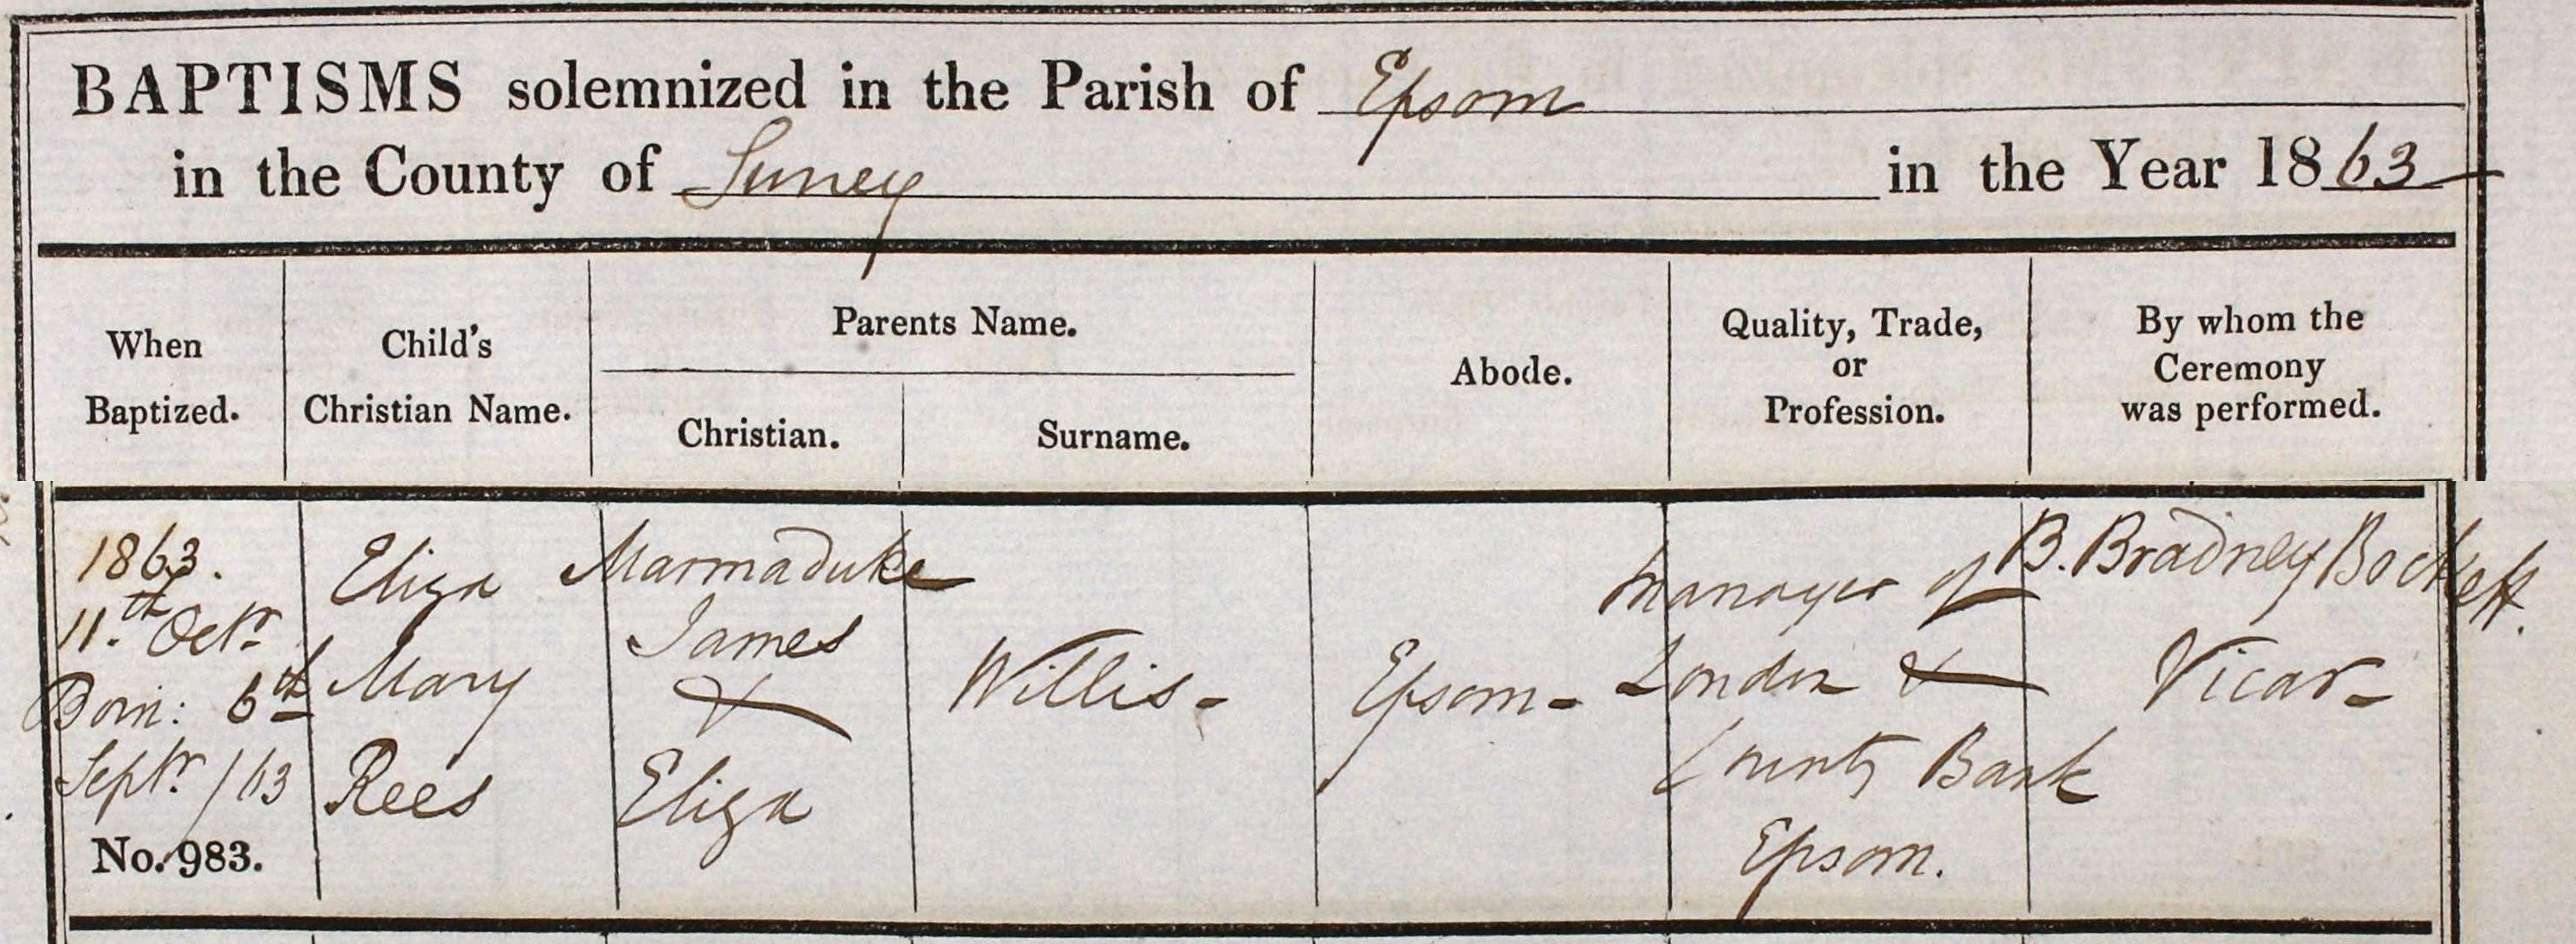 BAPTISMS solemnized in the Parish of Epsom
in the County of Surrey in the Year 1863
When
Baptized.
Child's
Christian Name.
Parents Name.
Christian.
Surname.
Abode.
Quality, Trade,
or
Profession.
By whom the
Ceremony
was performed.
1863.
11.th Octr
Born: 6th
Septr /63
No. 983.
Eliza
Mary
Rees
Marmaduke
James
&
Eliza
Willis-
Epsom-
Manager of
London &
County Bank
Epsom.
B. Bradney Bockett.
Vicar-